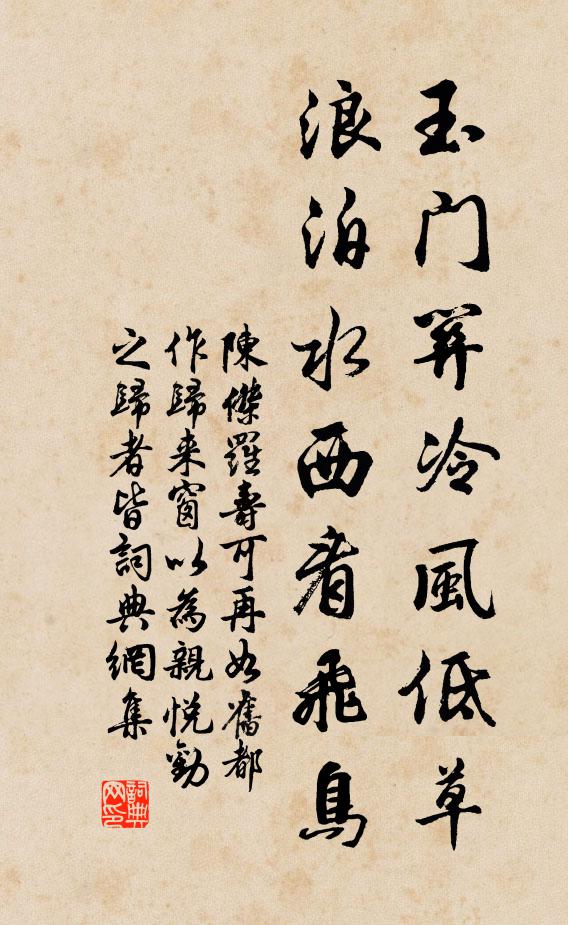 玉门笄冷風低草
浪泊水西看飛鳥
陳傑羅壽可再如舊都
作歸来窗以為親悅勸
之歸者皆詞典網集
詞典网印